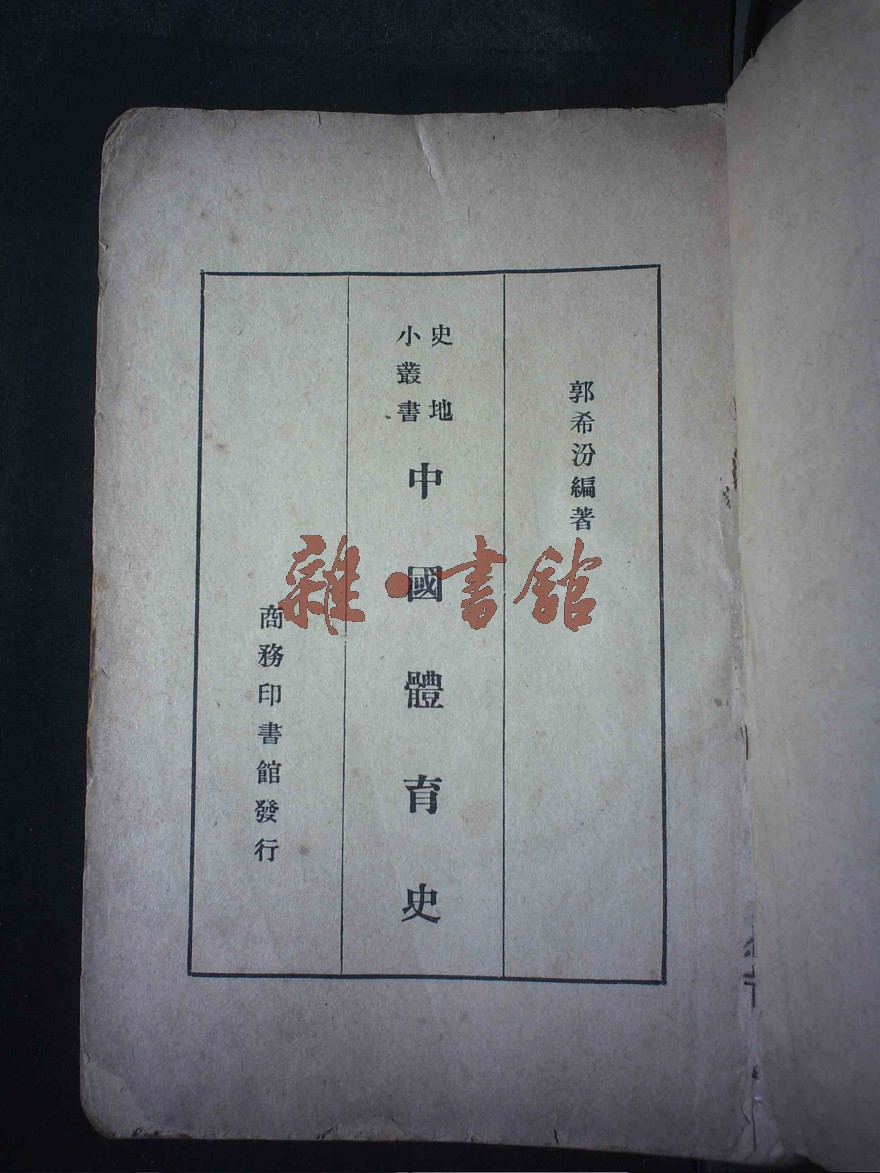 郭希汾編著
史地
小叢書
中國體育史
商務印書館發行
雜·書館